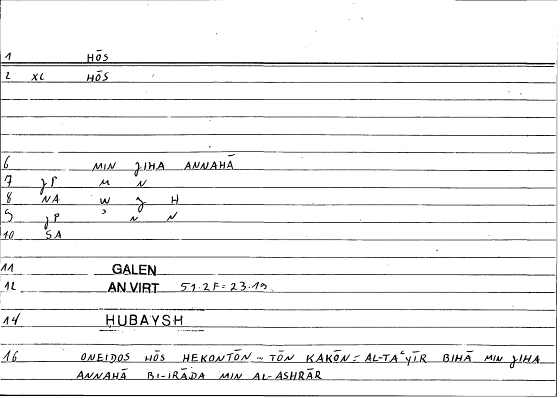 1 HŌS
2 XC HŌS
6 MIN JIHA ANNAHĀ
7 JP M N
8 NA W J H
9 JP ʾ N N
10 SA
11 GALEN
12 AN VIRT 51.2F = 23.19
14 ḤUBAYSH
16 ONEIDOS HŌS HEKONTŌN – TŌN KAKŌN = AL-TAʿYĪR BIHĀ MIN JIHA
ANNAHĀ BI-IRĀDA MIN AL-ASHRĀR